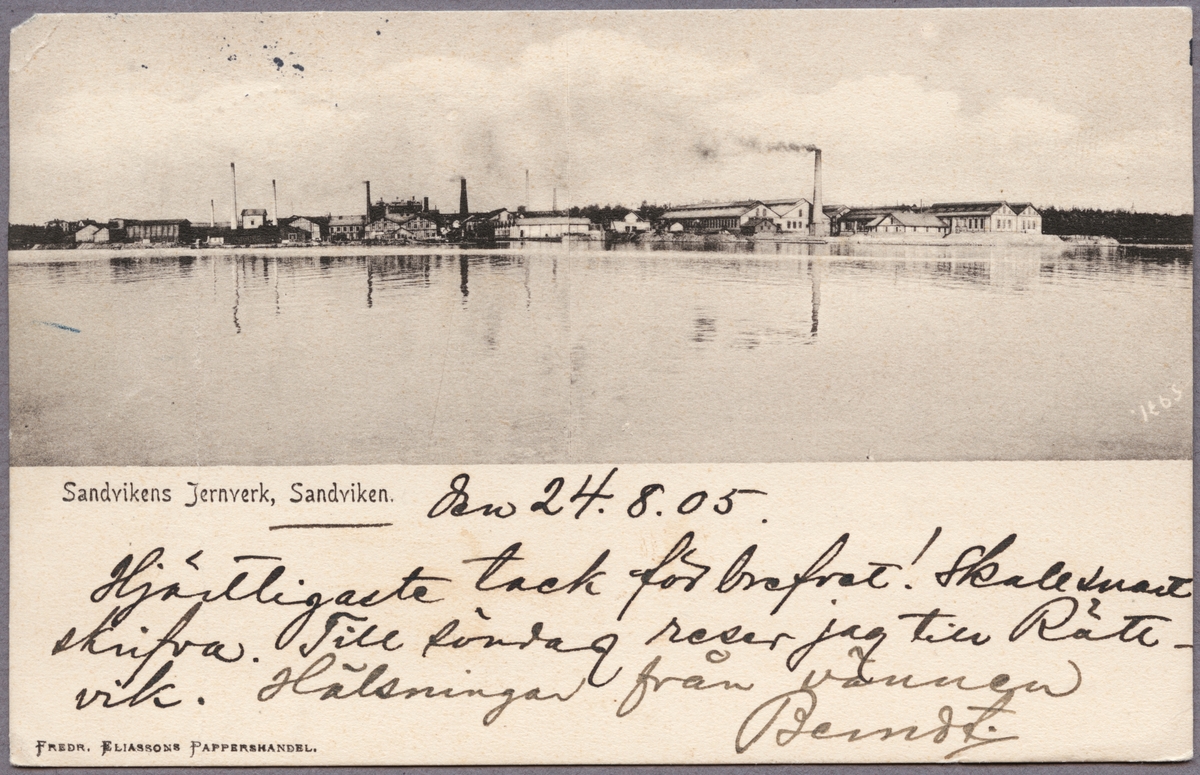 Sandvikens Jernverk, Sandviken. den 24. 8. 05.
Hjärtligaste tack för brefvet! Skall snart
skrifva. Till söndag reser jag till Rätt-
vik. Hälsningar från vännen
Berndt.
FREDR. ELIASSONS PAPPERSHANDEL.